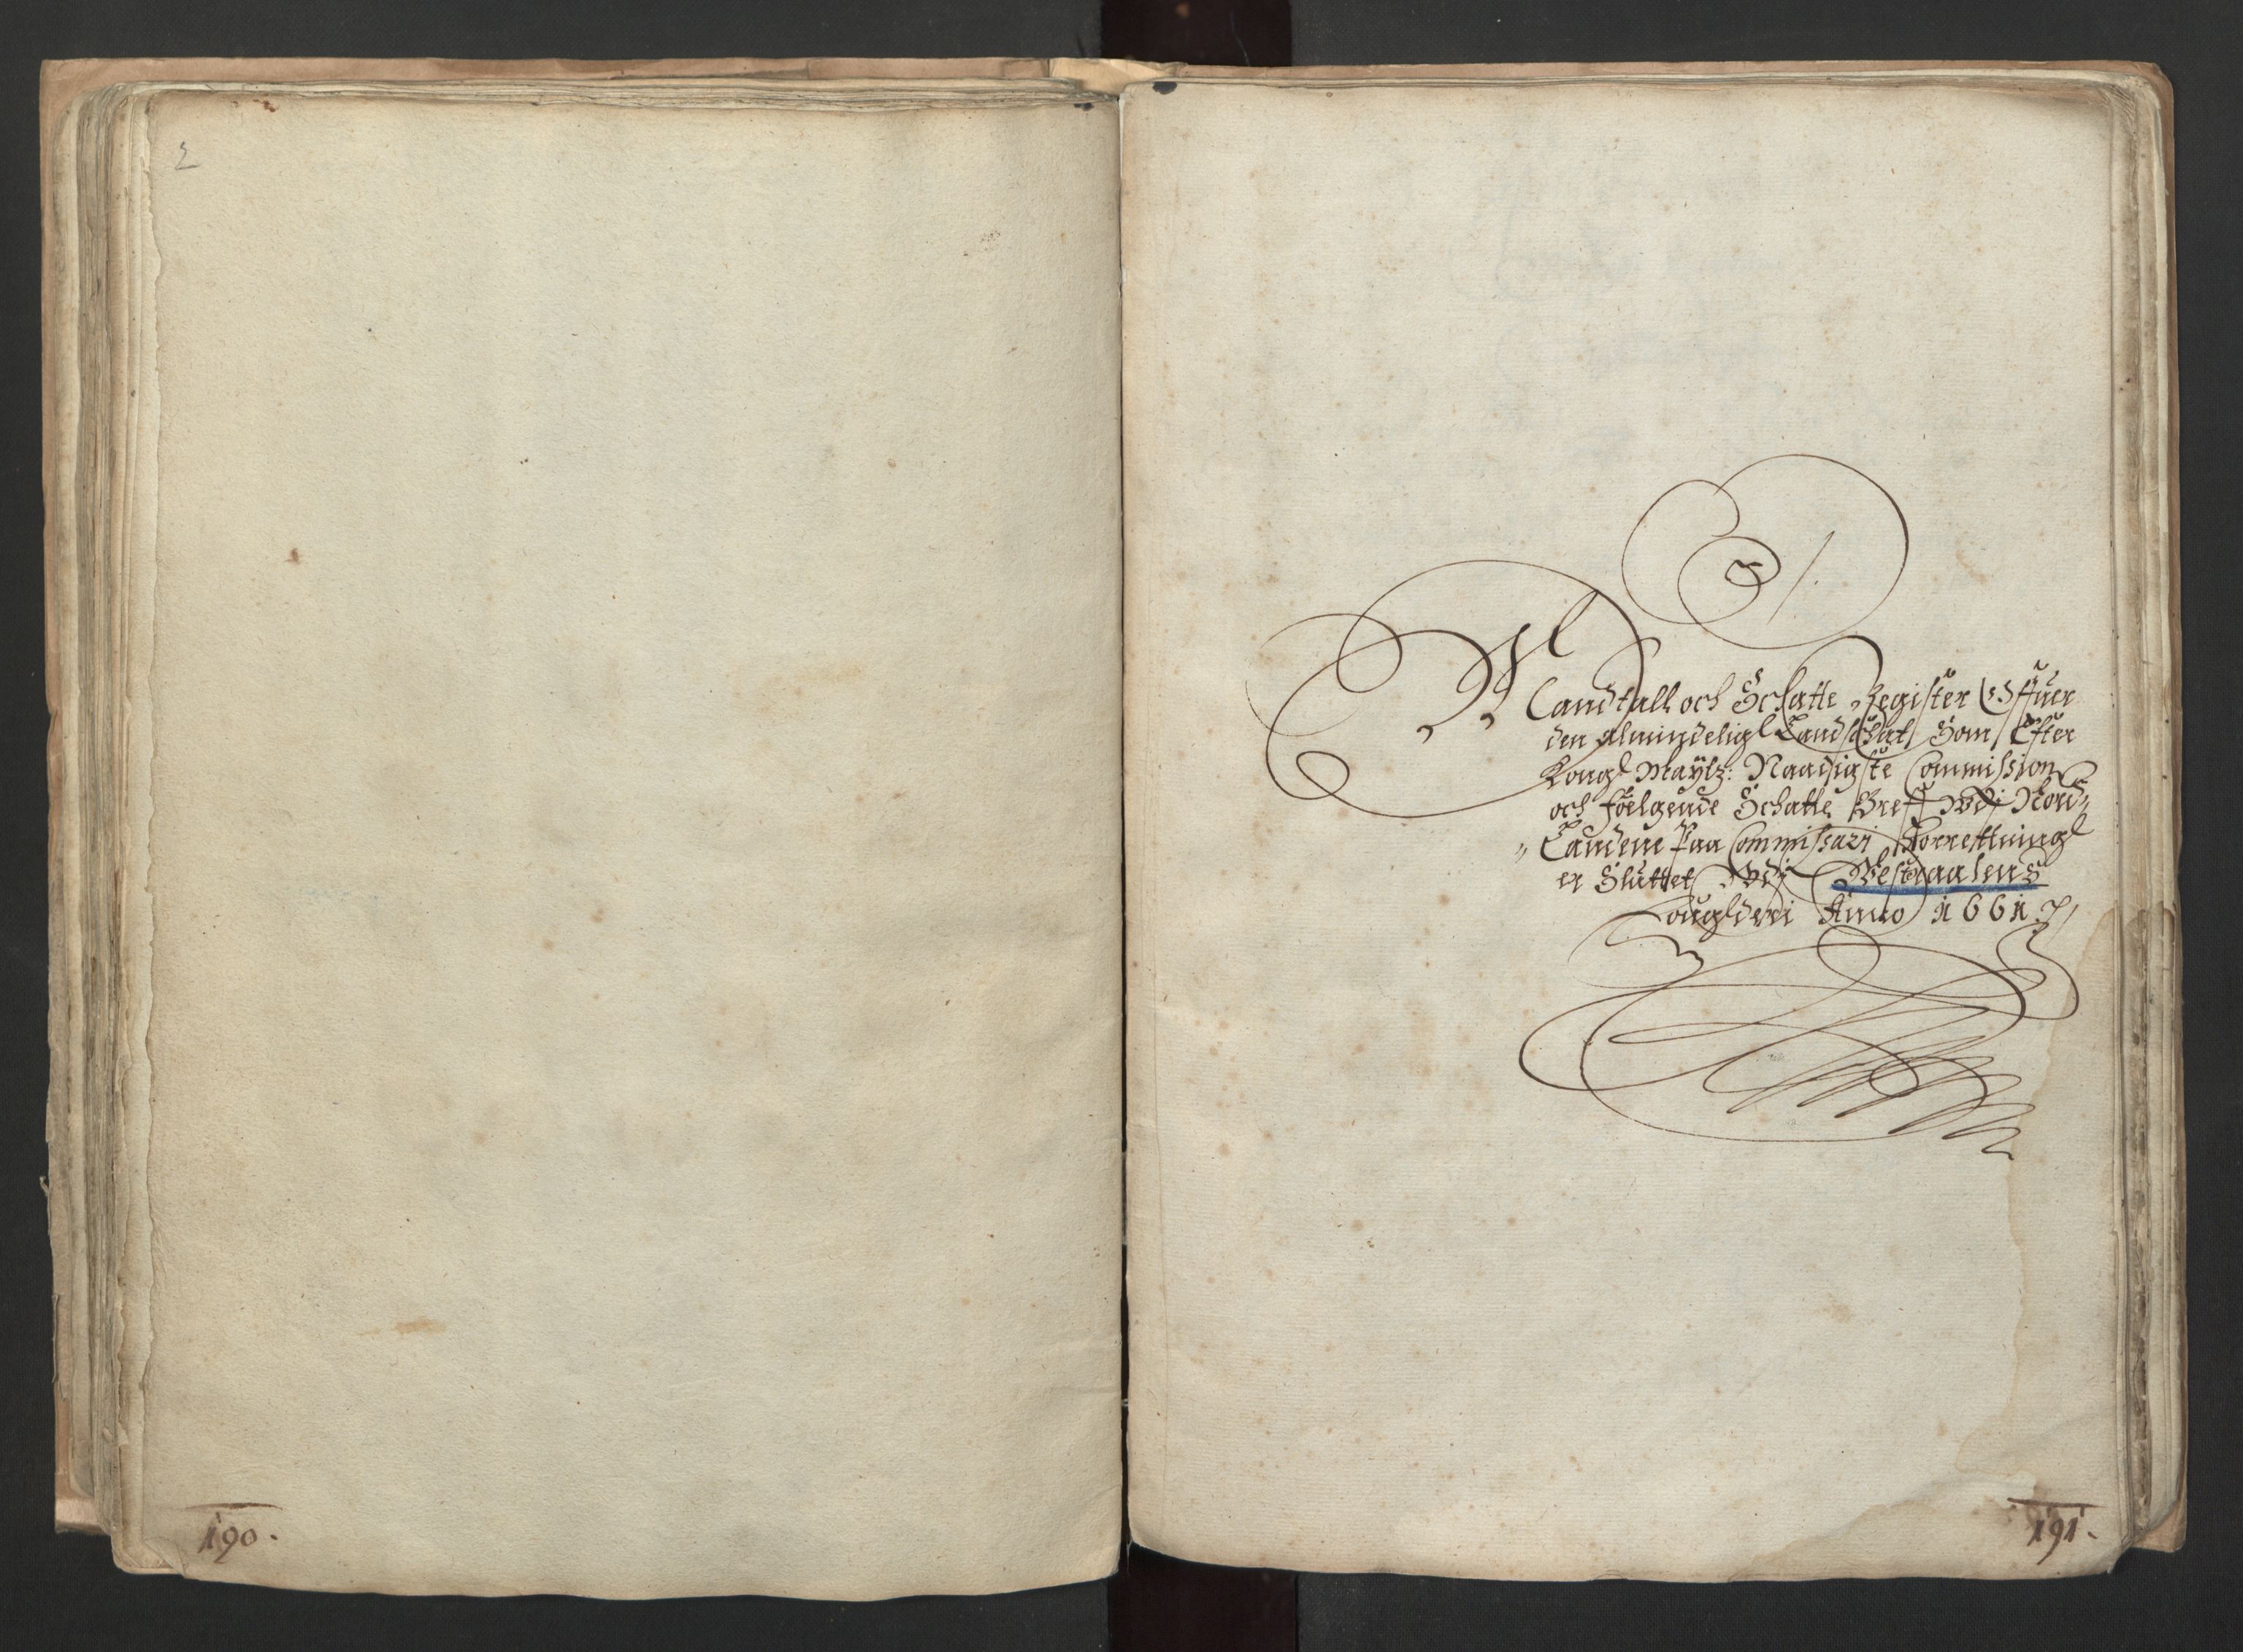 2
Mandtall och Schatte Register Offuer
den Almindelig Landschat Som Efter
Kongl Maÿtz: Naadigste Commission
och følgende Schatte Breff Vdj Nord„
„Landene Paa Commissarj Forrettning
er Sluttet Vdj Westraalens
Fougderi Anno 1661
190.
191.